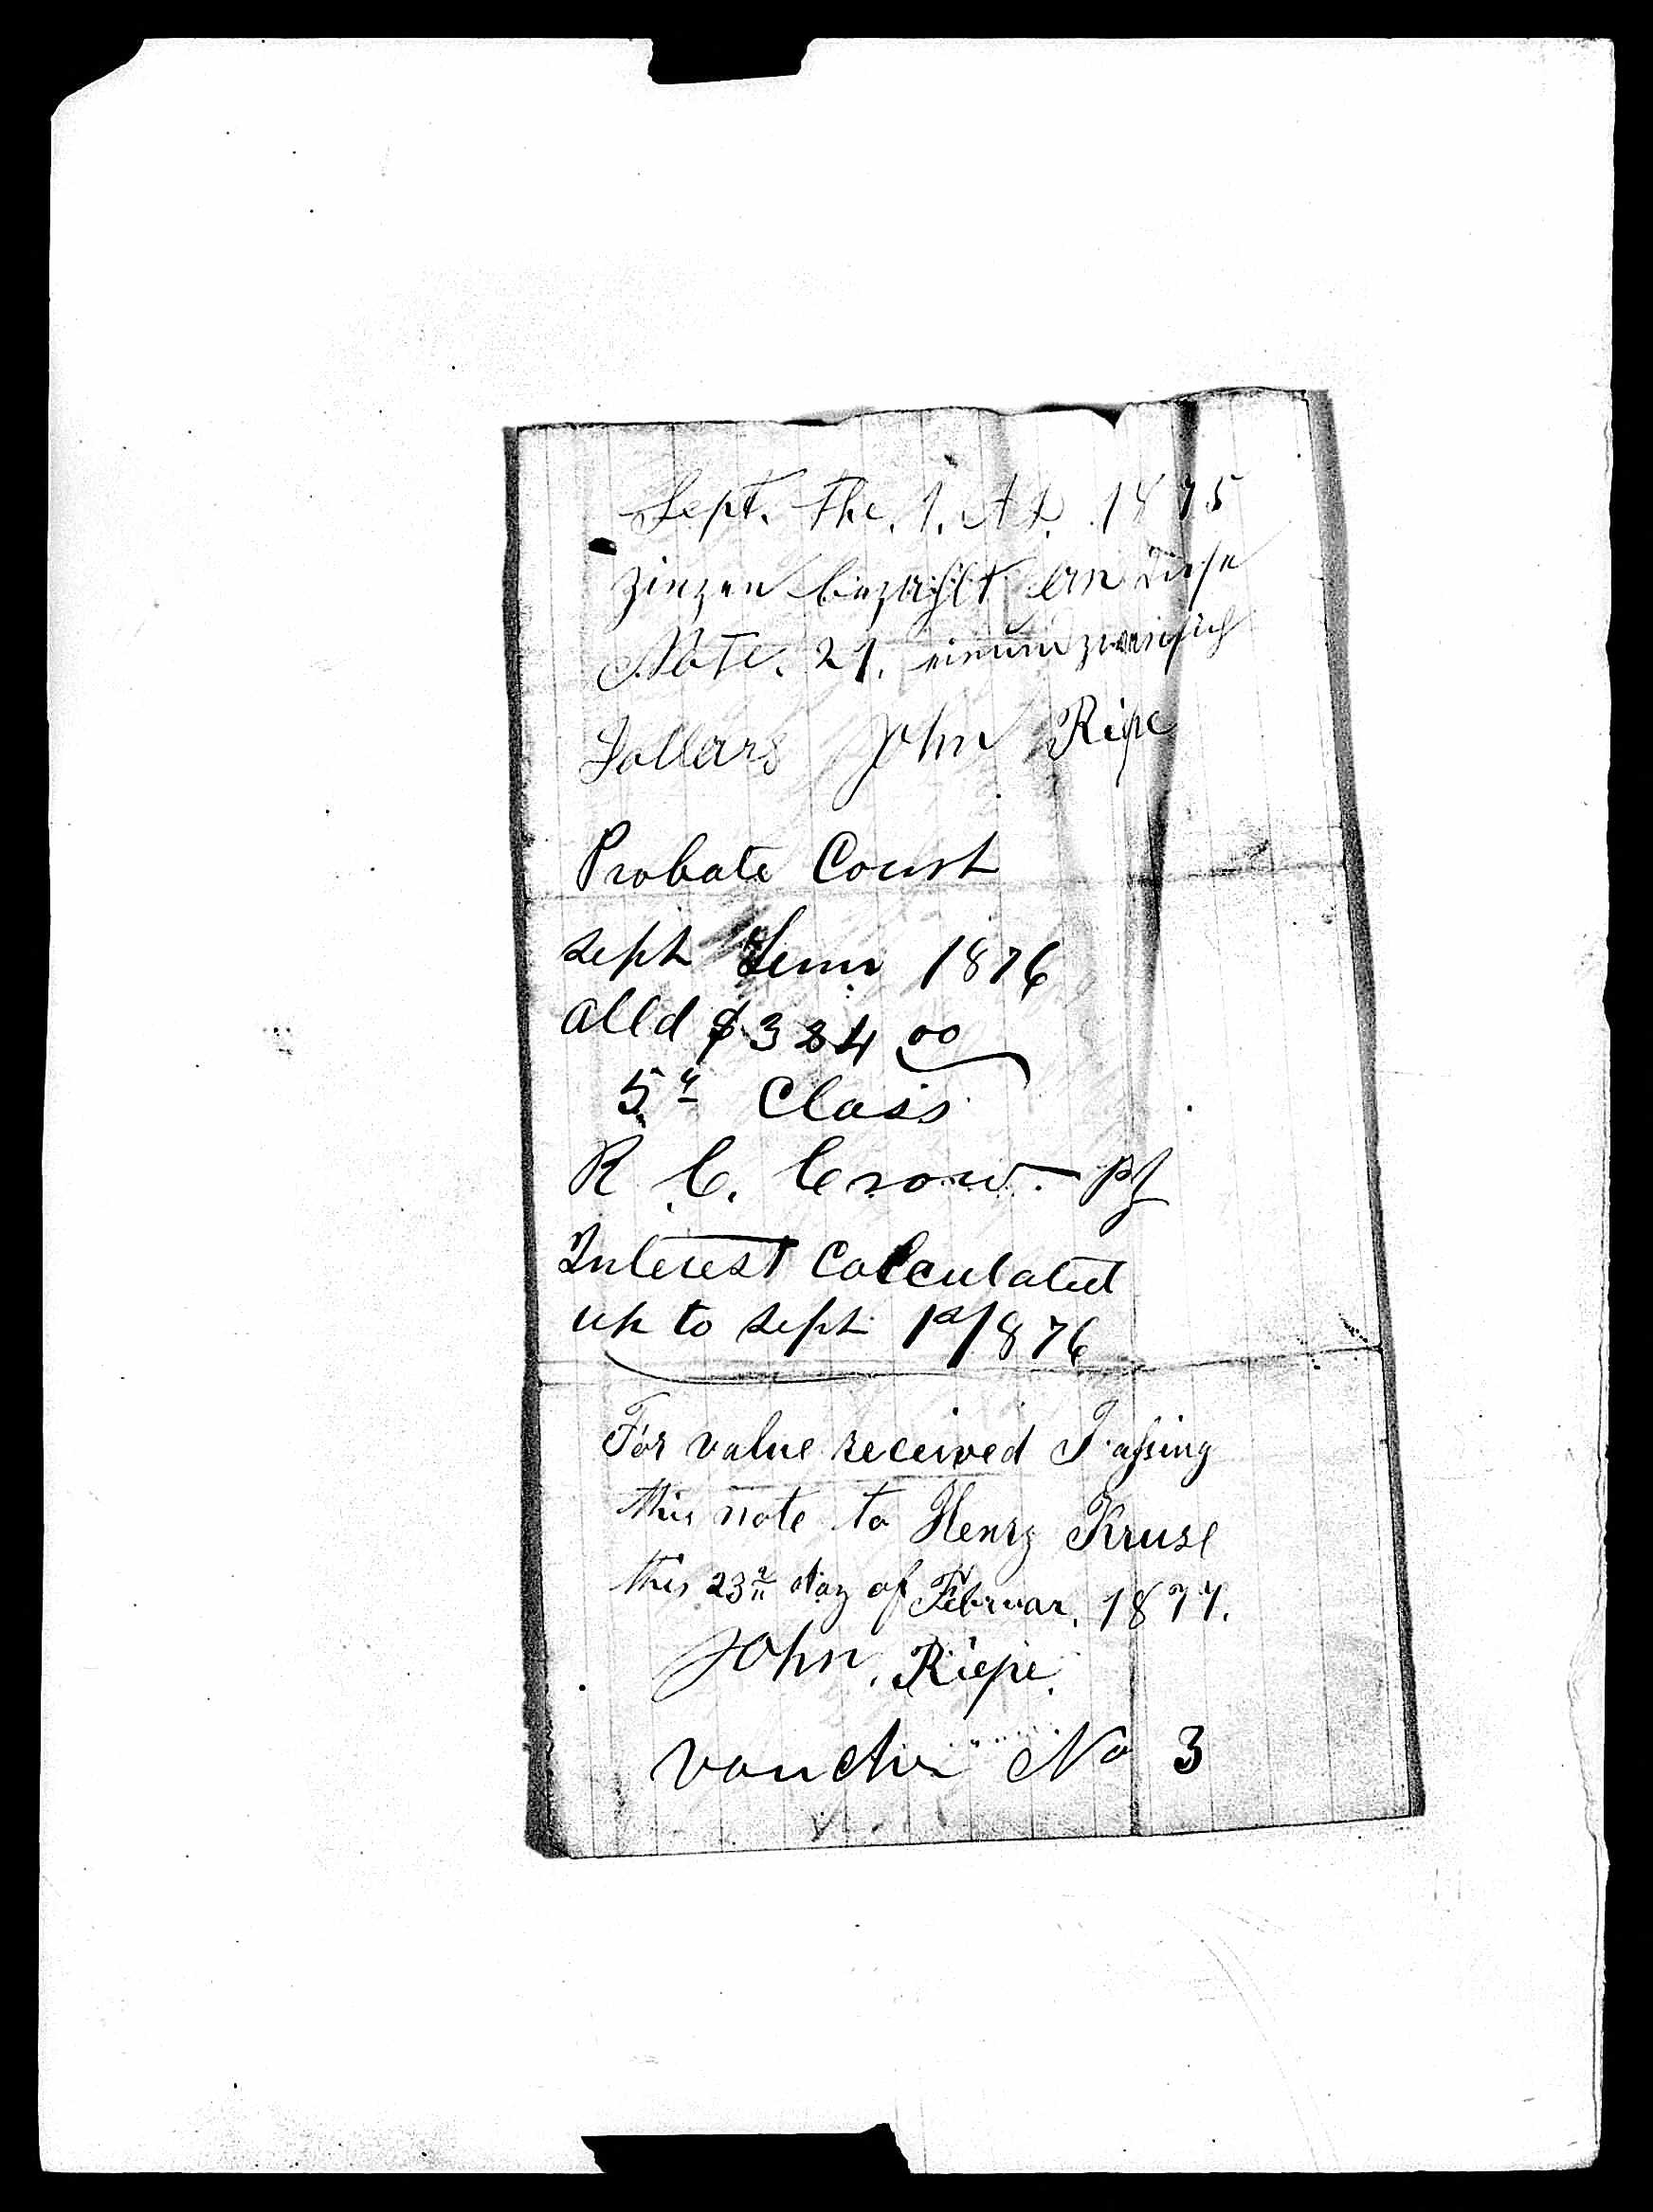 Sept. the. 1. AD. 1875
Zinzen bezahlt an diese
Note. 21. einundzwanzich
Dollars John Ripe
Probate Court
sept Term 1876
alld $324 00
5th Class
R. C. Crow. PJ
Interest Calculated
up to sept 1st 1876
For value received I assing
this note to Henry Kruse
this 23th day of Februar. 1877.
John. Riepe.
voucher No 3